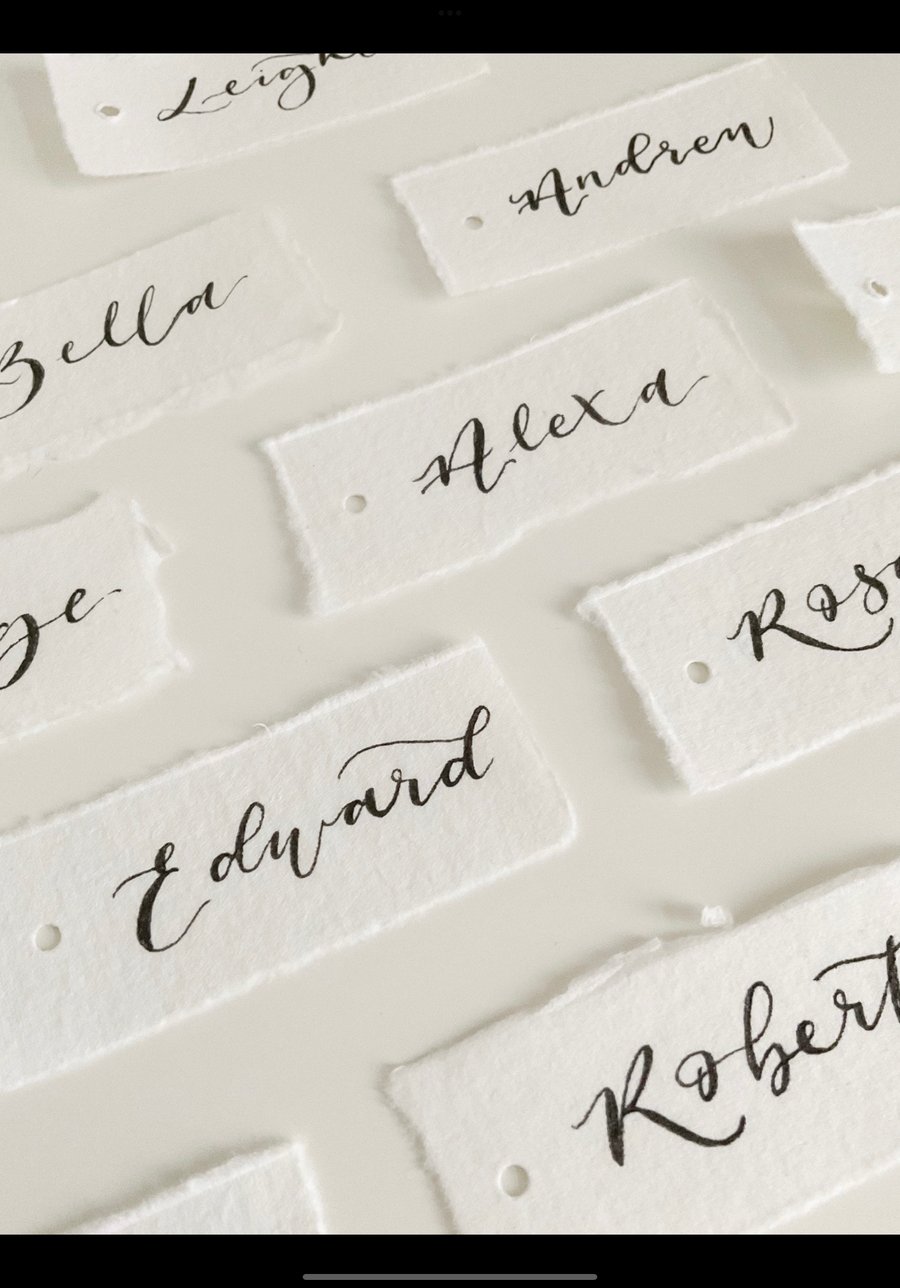 Leigh
Andren
Bella
Alexa
ge
Ros
Edward
Robert